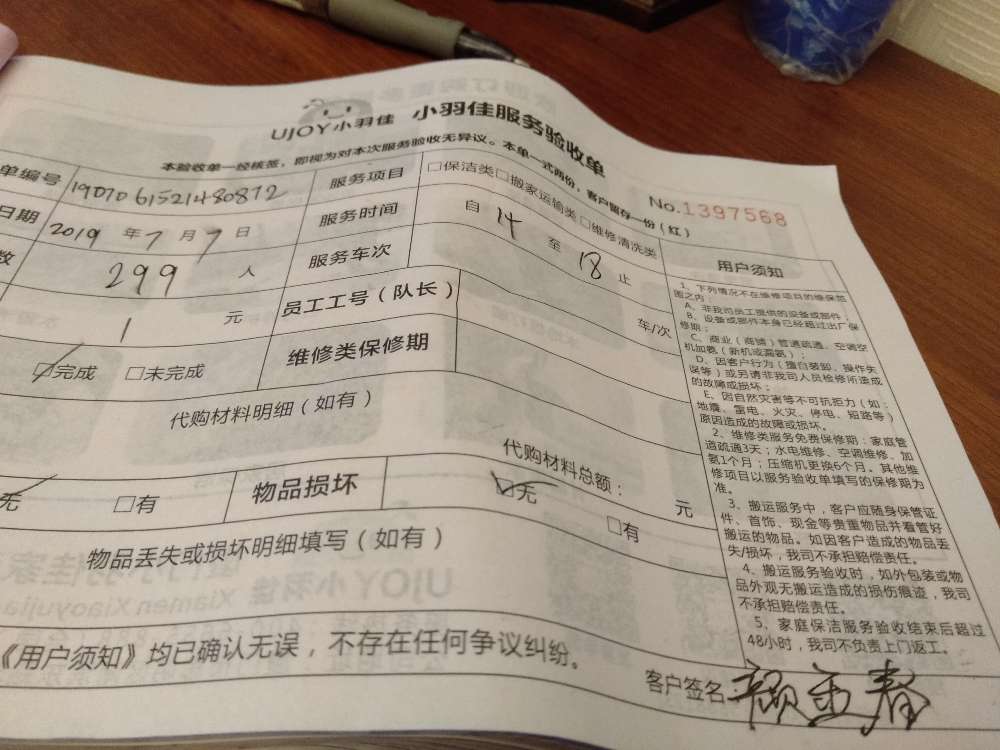 UJOY小羽佳 小羽佳服务验收单
本验收单一经核签，即视为对本次服务验收无异议。本单一式两份，客户留存一份（红）
No.1397568
单编号 1907061521480812 服务项目 □保洁类□搬家运输类□维修清洗类
日期 2019 年 7 月 7 日 服务时间 自 14 至 18 止
数 299 人 服务车次 车/次
1 元 员工工号（队长）
☑完成 □未完成 维修类保修期
代购材料明细（如有）
代购材料总额： 元
无 □有 物品损坏 ☑无 □有
物品丢失或损坏明细填写（如有）
《用户须知》均已确认无误，不存在任何争议纠纷。
客户签名：
用户须知
1、下列情况不在维修项目的维保范
围之内：
A、非我司员工提供的设备或部件；
B、设备或部件本身已经超过出厂保
修期；
C、商业（商铺）管道疏通、空调空
机加氨（新机或漏氨）；
D、因客户行为（擅自装卸、操作失
误等）或另请非我司人员检修所造成
的故障或损坏；
E、因自然灾害等不可抗拒力（如：
地震、雷电、火灾、停电、短路等）
原因造成的故障或损坏。
2、维修类服务免费保修期：家庭管
道疏通3天；水电维修、空调维修、加
氨1个月；压缩机更换6个月。其他维
修项目以服务验收单填写的保修期为
准。
3、搬运服务中，客户应随身保管证
件、首饰、现金等贵重物品并看管好
搬运的物品。如因客户造成的物品丢
失/损坏，我司不承担赔偿责任。
4、搬运服务验收时，如外包装或物
品外观无搬运造成的损伤痕迹，我司
不承担赔偿责任。
5、家庭保洁服务验收结束后超过
48小时，我司不负责上门返工。